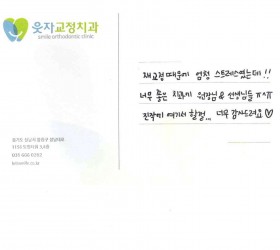 웃자교정치과
smile orthodontic clinic
재교정 때문에 엄청 스트레스였는데!!
너무 좋은 치과에 원장님 & 선생님들 ㅠㅅㅠ
진작에 여기서 할걸... 너무 감사드려요♡